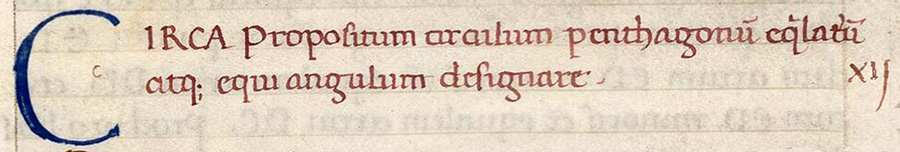 CIRCA Propositum circulum penthagonū eq̃latũ
atq; equiangulum designare.
XIJ